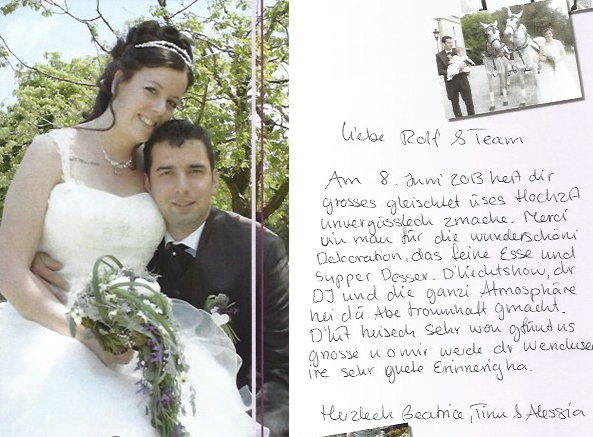 Liebe Rolf & Team
Am 8. Juni 2013 heit dir
grosses gleischtet üses Hochzit
unvergässlech zmache. Merci
viu mau für die wunderschöni
Dekoration, das feine Esse und
supper Desser. D'Liechtshow, dr
DJ und die ganzi Atmosphäre
hei dä Abe traumhaft gmacht.
D'Lüt heisech sehr wou gfüut us
gnosse u o mir werde dr Wendusee
ire sehr guete Erinnerig ha.
Herzlech Beatrice, Tinu & Alessia